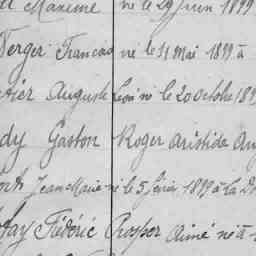 Maxime né le 29 Juin 1899
Verger Francois né le 11 Mai 1899 à
Auguste Léon né le 20 Octobre 189
dy Gaston Roger Aristide Au
Jean Marie né le 5 1899 à La D
fay Frédéric Prosper Aimé né à